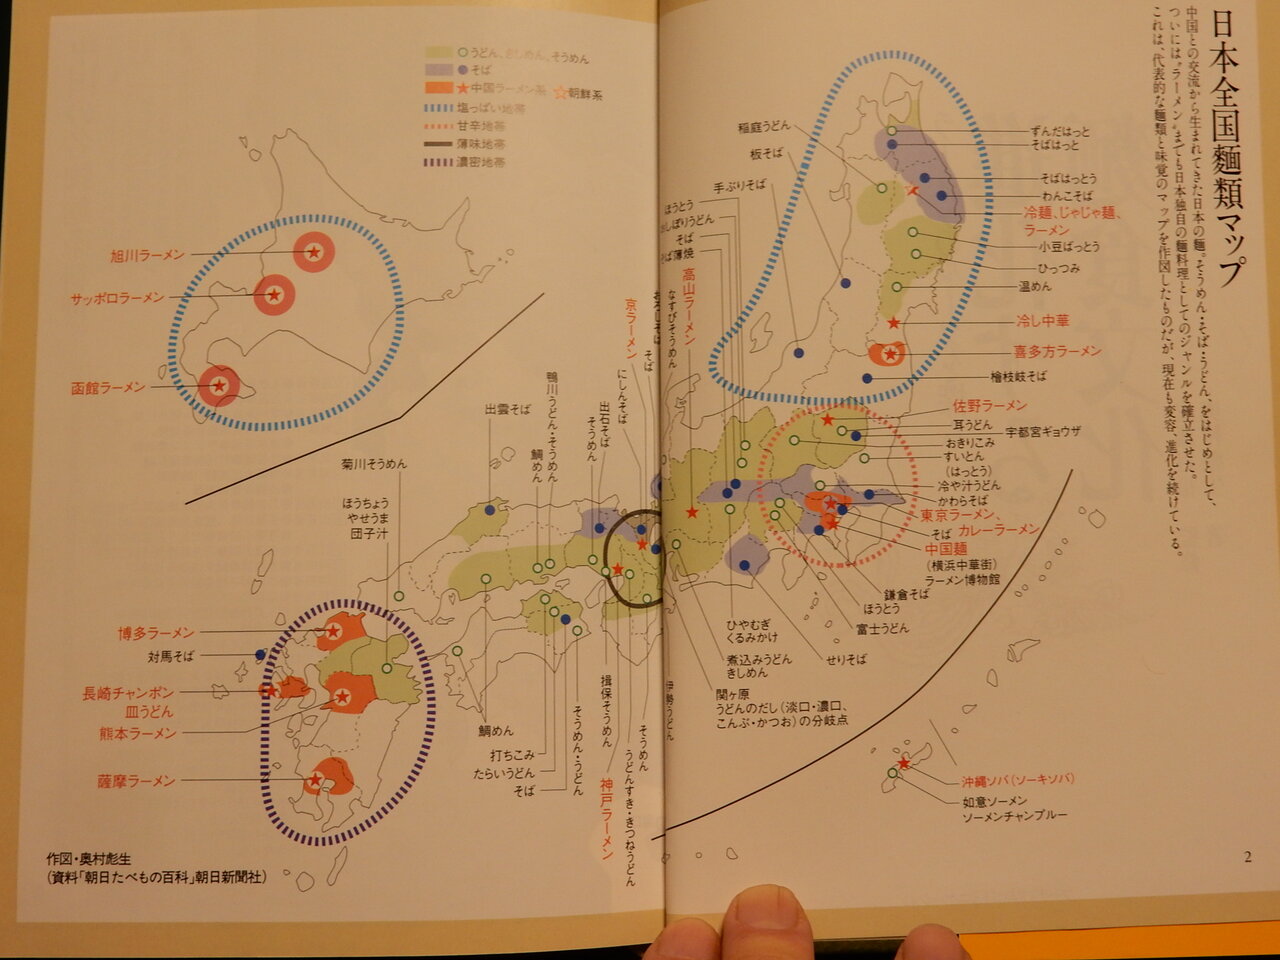 日本全国麵類マップ
中国との交流から生まれてきた日本の麵。そうめん・そば・うどん、をはじめとして、
ついには“ラーメン”までも日本独自の麵料理としてのジャンルを確立させた。
これは、代表的な麵類と味覚のマップを作図したものだが、現在も変容、進化を続けている。
うどん、きしめん、そうめん
そば
中国ラーメン系 朝鮮系
塩っぱい地帯
甘辛地帯
薄味地帯
濃密地帯
旭川ラーメン
サッポロラーメン
函館ラーメン
稲庭うどん
板そば
手ぶりそば
ほうとう
おしぼりうどん
そば
そば薄焼
高山ラーメン
なすびそうめん
おろしそば
京ラーメン
そば
にしんそば
出石そば
そうめん
鴨川うどん・そうめん
鯛めん
出雲そば
菊川そうめん
ほうちょう
やせうま
団子汁
ずんだはっと
そばはっと
そばはっとう
わんこそば
冷麵、じゃじゃ麵、
ラーメン
小豆ばっとう
ひっつみ
温めん
冷し中華
喜多方ラーメン
檜枝岐そば
佐野ラーメン
耳うどん
宇都宮ギョウザ
おきりこみ
すいとん
(はっとう)
冷や汁うどん
かわらそば
東京ラーメン、
そば カレーラーメン
中国麵
(横浜中華街)
ラーメン博物館
鎌倉そば
ほうとう
富士うどん
せりそば
ひやむぎ
くるみかけ
煮込みうどん
きしめん
関ヶ原
うどんのだし(淡口・濃口、
こんぶ・かつお)の分岐点
伊勢うどん
そうめん
うどんすき・きつねうどん
揖保そうめん
神戸ラーメン
そうめん・うどん
鯛めん
打ちこみ
たらいうどん
そば
博多ラーメン
対馬そば
長崎チャンポン
皿うどん
熊本ラーメン
薩摩ラーメン
沖縄ソバ(ソーキソバ)
如意ソーメン
ソーメンチャンプルー
作図・奥村彪生
(資料「朝日たべもの百科」朝日新聞社)
2